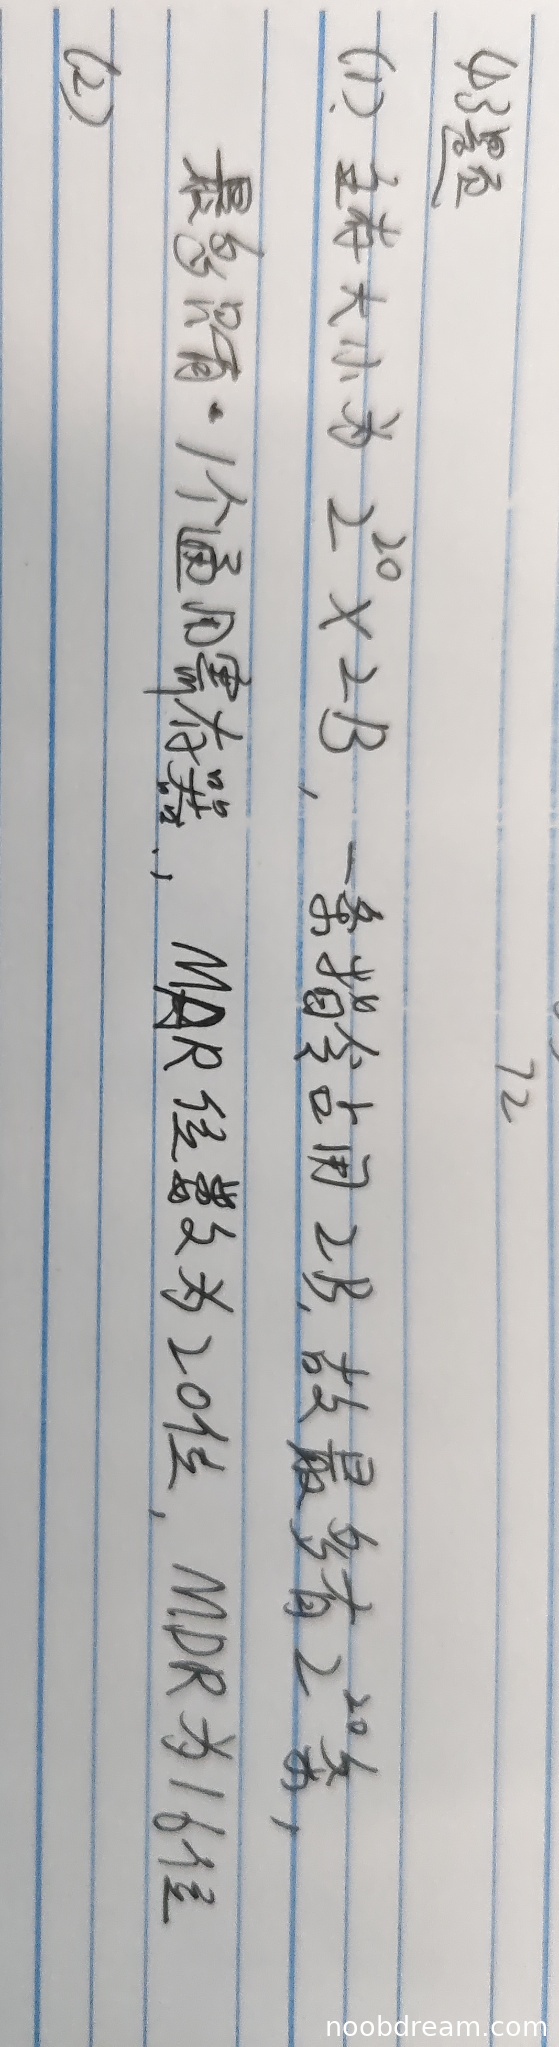 43题
72
(1). 主存大小为 2²⁰×2B, 一条指令占用2B, 故最多有2²⁰条,
最多只有1个通用寄存器., MAR位数为20位, MDR为16位
(2)
noobdream.com